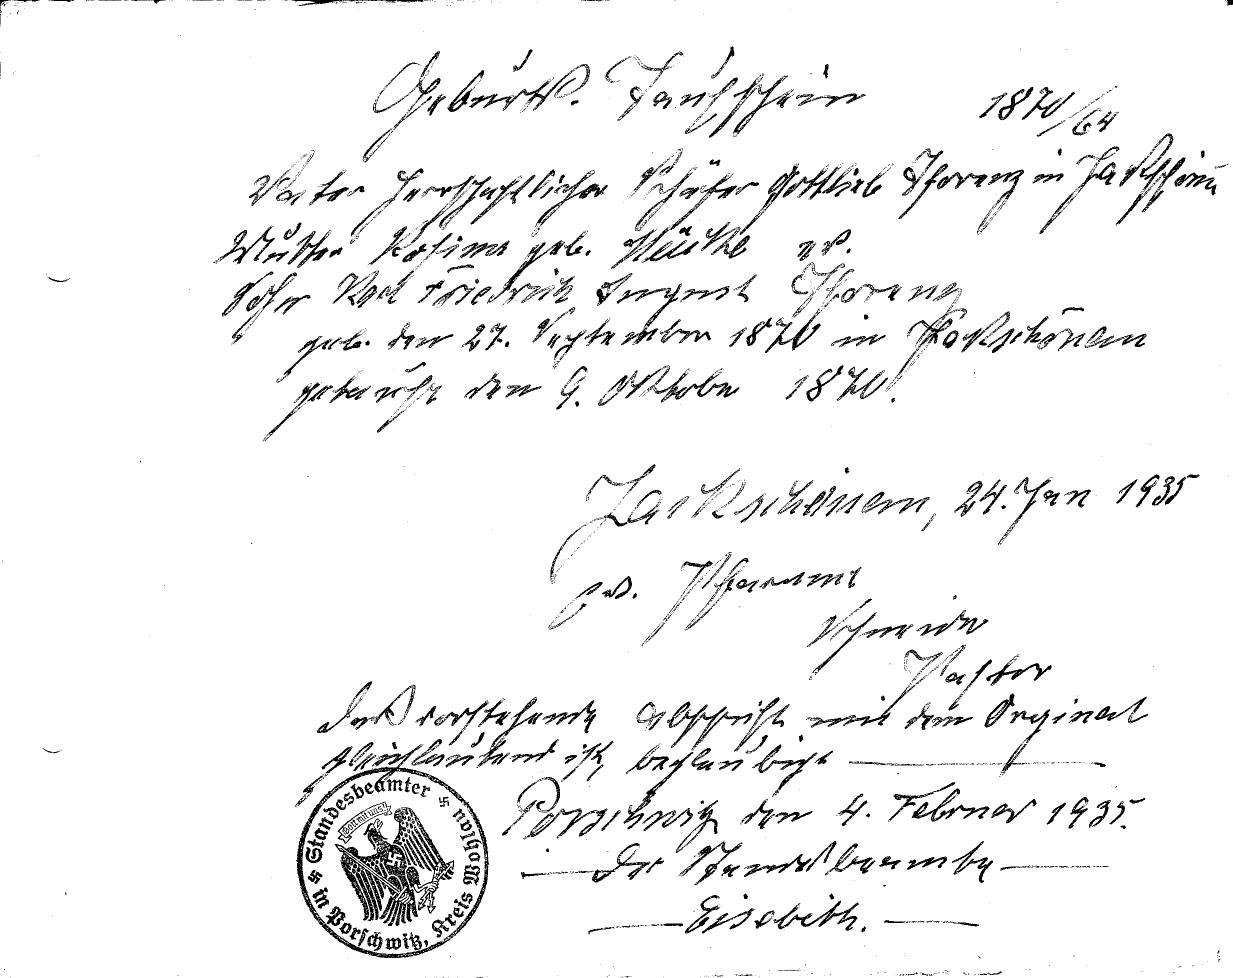 Geburts. Taufschein 1870/64
Vater Herrschaftlicher Schäfer Gottlieb Thorenz in Jackschönau
Mutter Rosina geb. ev.
Sohn Karl Friedrich August Thorenz
geb. den 27. September 1870 in Jackschönau
getauft den 9. Oktober 1870.
Jackschönau, 24. Jan 1935
ev. Pfarramt
Schneider
Pastor
Das vorstehende Abschrift mit dem Orginal
gleichlautend ist, beglaubigt
Porschwitz den 4. Februar 1935.
Der Standesbeamte
Elsebith.
Standesbeamter
in Porschwitz, Kreis Wohlau
Gott mit uns